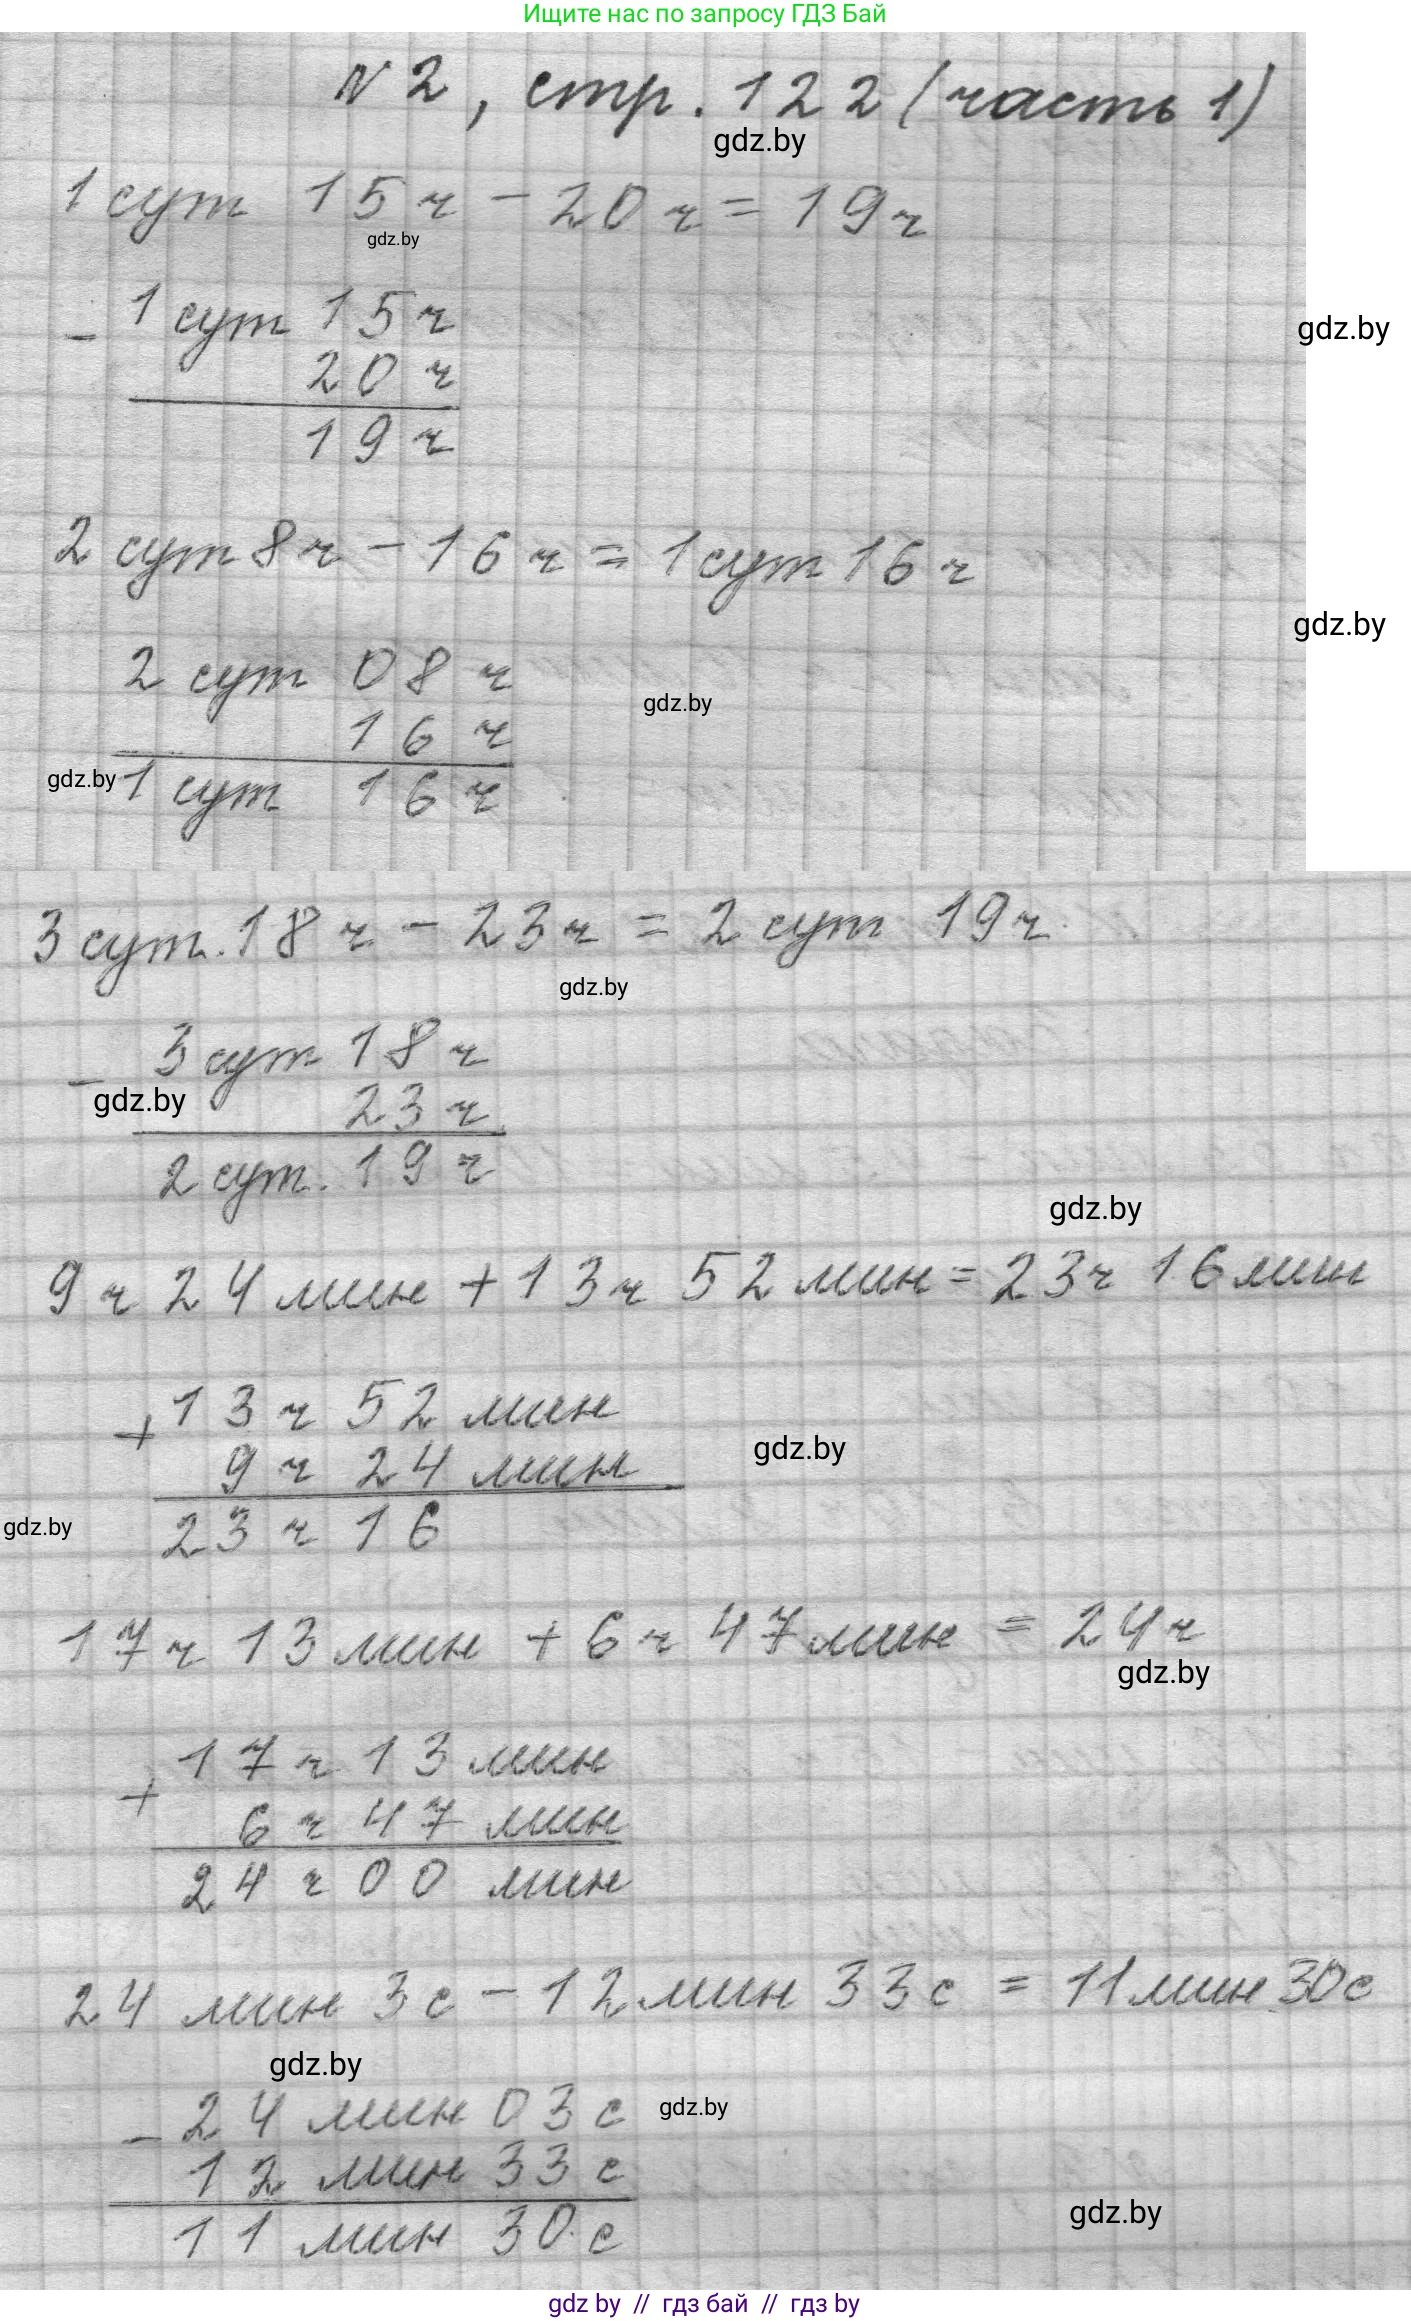 Ищите нас по запросу ГДЗ Бай
N 2, стр. 122 (часть 1)
gdz.by
1 сут 15 ч - 20 ч = 19 ч
gdz.by
- 1 сут 15 ч
gdz.by
20 ч
19 ч
2 сут 8 ч - 16 ч = 1 сут 16 ч
gdz.by
2 сут 08 ч
gdz.by
16 ч
gdz.by
1 сут 16 ч
3 сут. 18 ч - 23 ч = 2 сут 19 ч
gdz.by
- 3 сут 18 ч
gdz.by
23 ч
2 сут. 19 ч
gdz.by
9 ч 24 мин + 13 ч 52 мин = 23 ч 16 мин
+ 13 ч 52 мин
gdz.by
9 ч 24 мин
gdz.by
23 ч 16
17 ч 13 мин + 6 ч 47 мин = 24 ч
gdz.by
+ 17 ч 13 мин
6 ч 47 мин
24 ч 00 мин
24 мин 3 с - 12 мин 33 с = 11 мин 30 с
gdz.by
- 24 мин 03 с
gdz.by
12 мин 33 с
gdz.by
11 мин 30 с
gdz by // гдз бай // гдз by